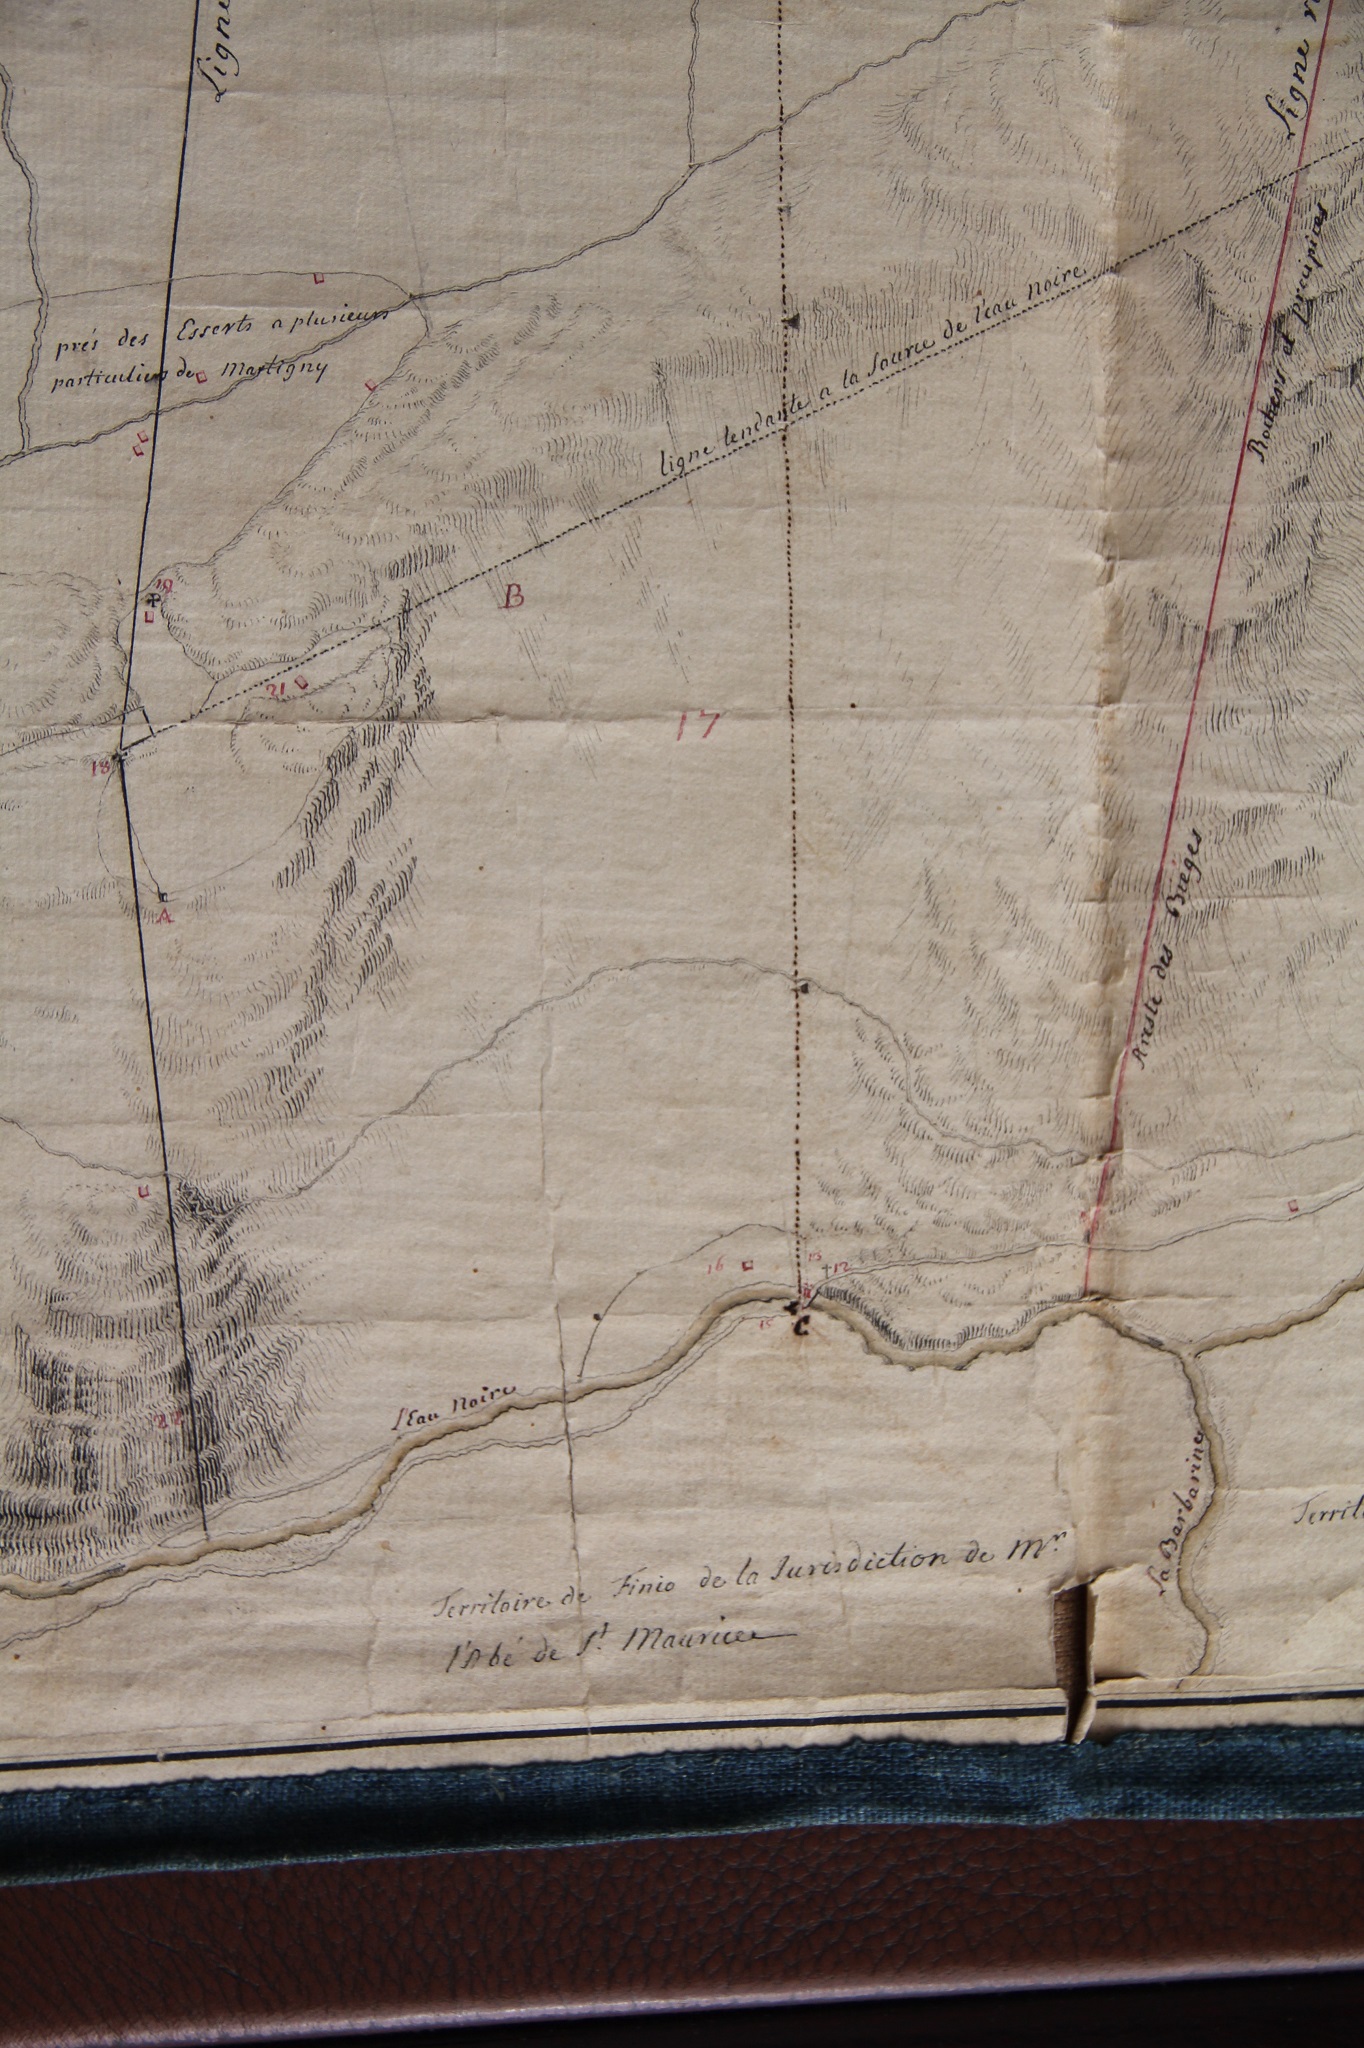 Ligne
Ligne
prés des Esserts a plusieurs
particuliers de Martigny
ligne tendante a la source de l'eau noire
Rochers et precipices
19
B
21
17
18
A
Areste des Bréges
16
13
12
15
C
l'Eau Noire
22
La Barbarine
Territoire de Finio de la Jurisdiction de Mr
l'Abé de St Maurice